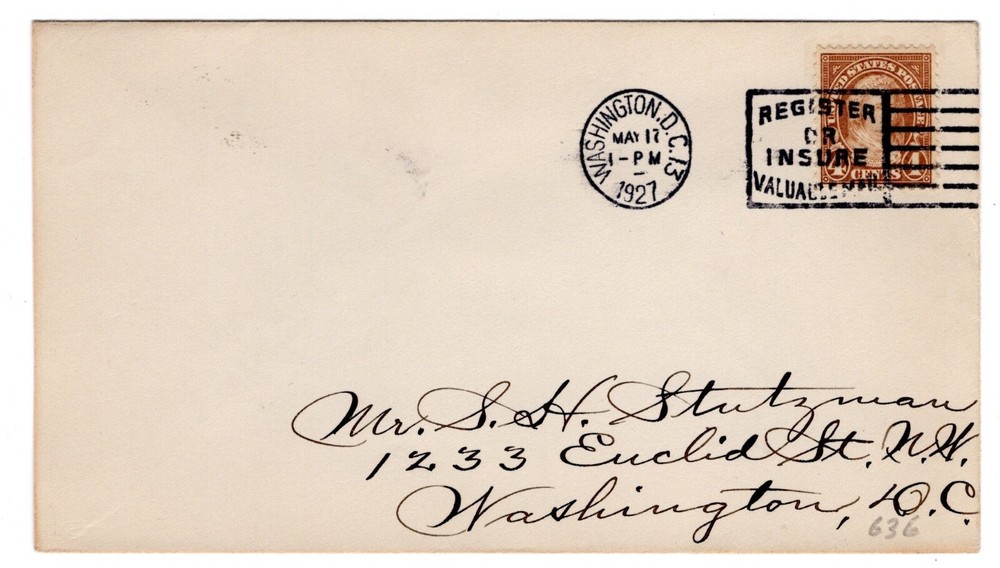 WASHINGTON, D.C. 13
MAY 17
1-PM
1927
REGISTER
OR
INSURE
VALUABLE MAIL
UNITED STATES POSTAGE
4 CENTS 4
Mr. S. H. Stutzman
1233 Euclid St. N.W.
Washington, D.C.
636